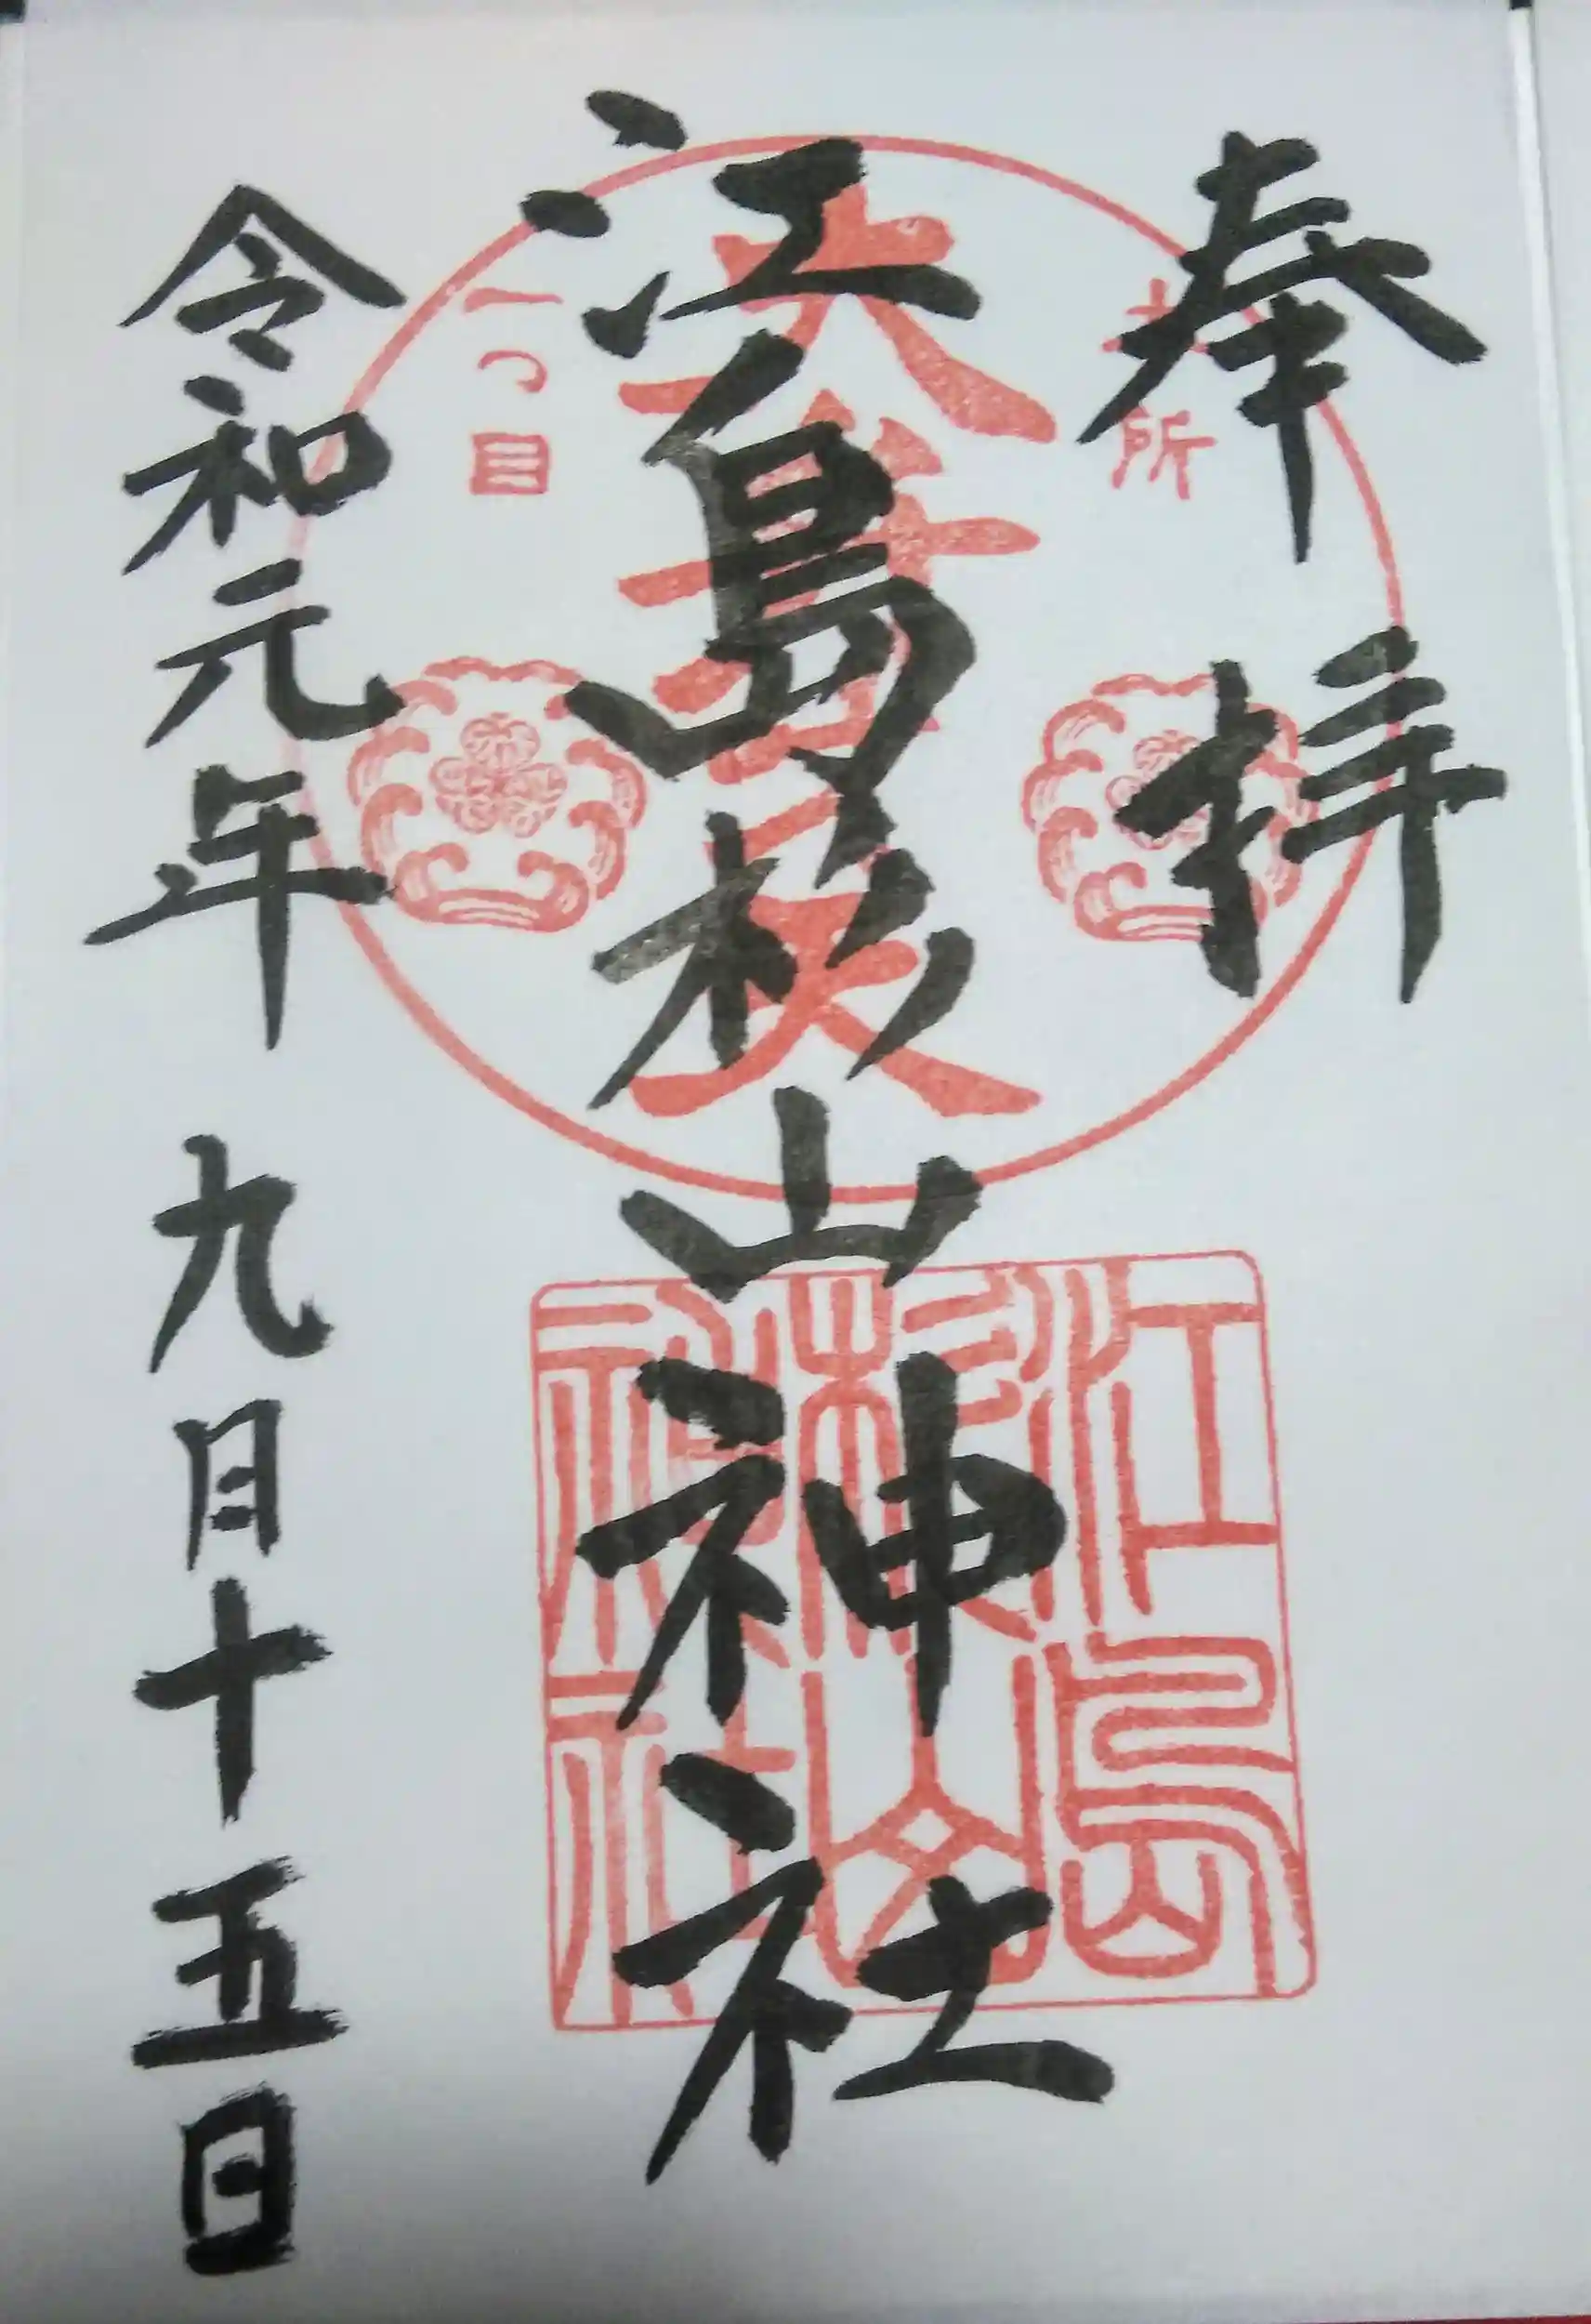 奉拝
江島杉山神社
令和元年 九月十五日
本所
一つ目
大弁才天
江島
杉山
神社